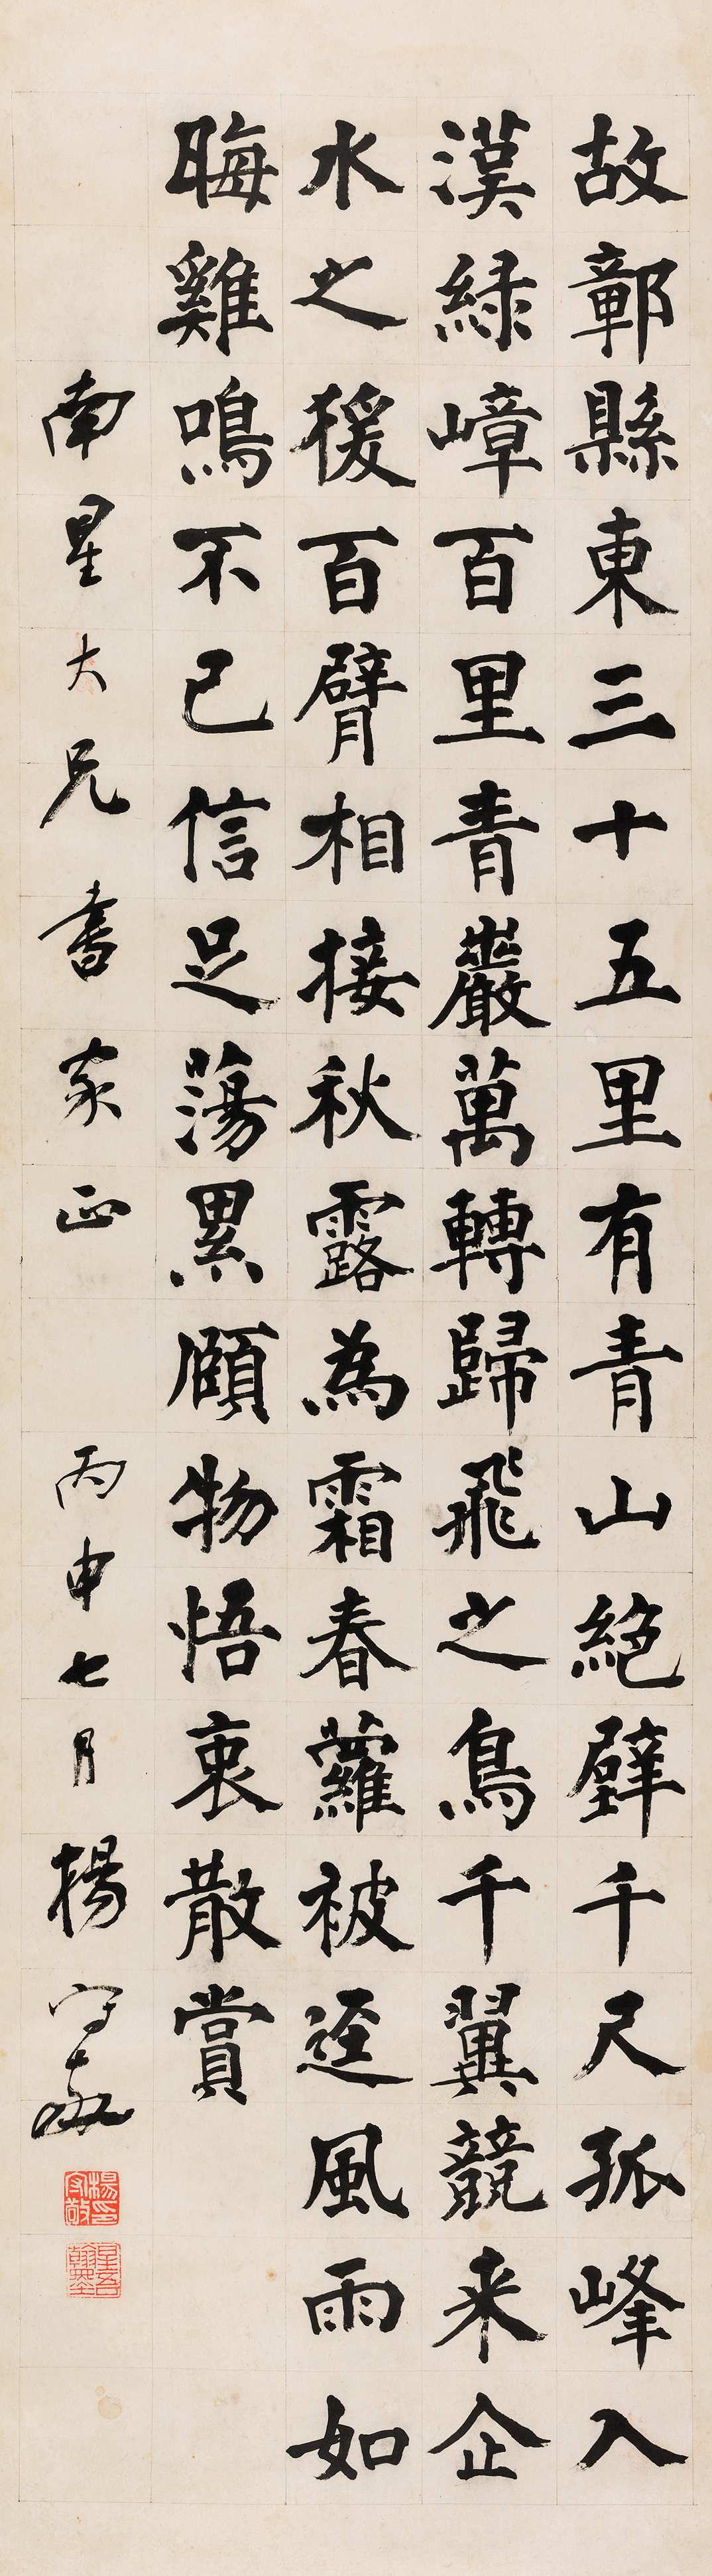 故鄣縣東三十五里有青山絕壁千尺孤峰入
漢緑嶂百里青巖萬轉歸飛之鳥千翼競来企
水之猨百臂相接秋露為霜春蘿被逕風雨如
晦雞鳴不已信足蕩累頤物悟衷散賞
南星大兄書家正
丙申七月楊守敬
楊守敬印
星吾翰墨